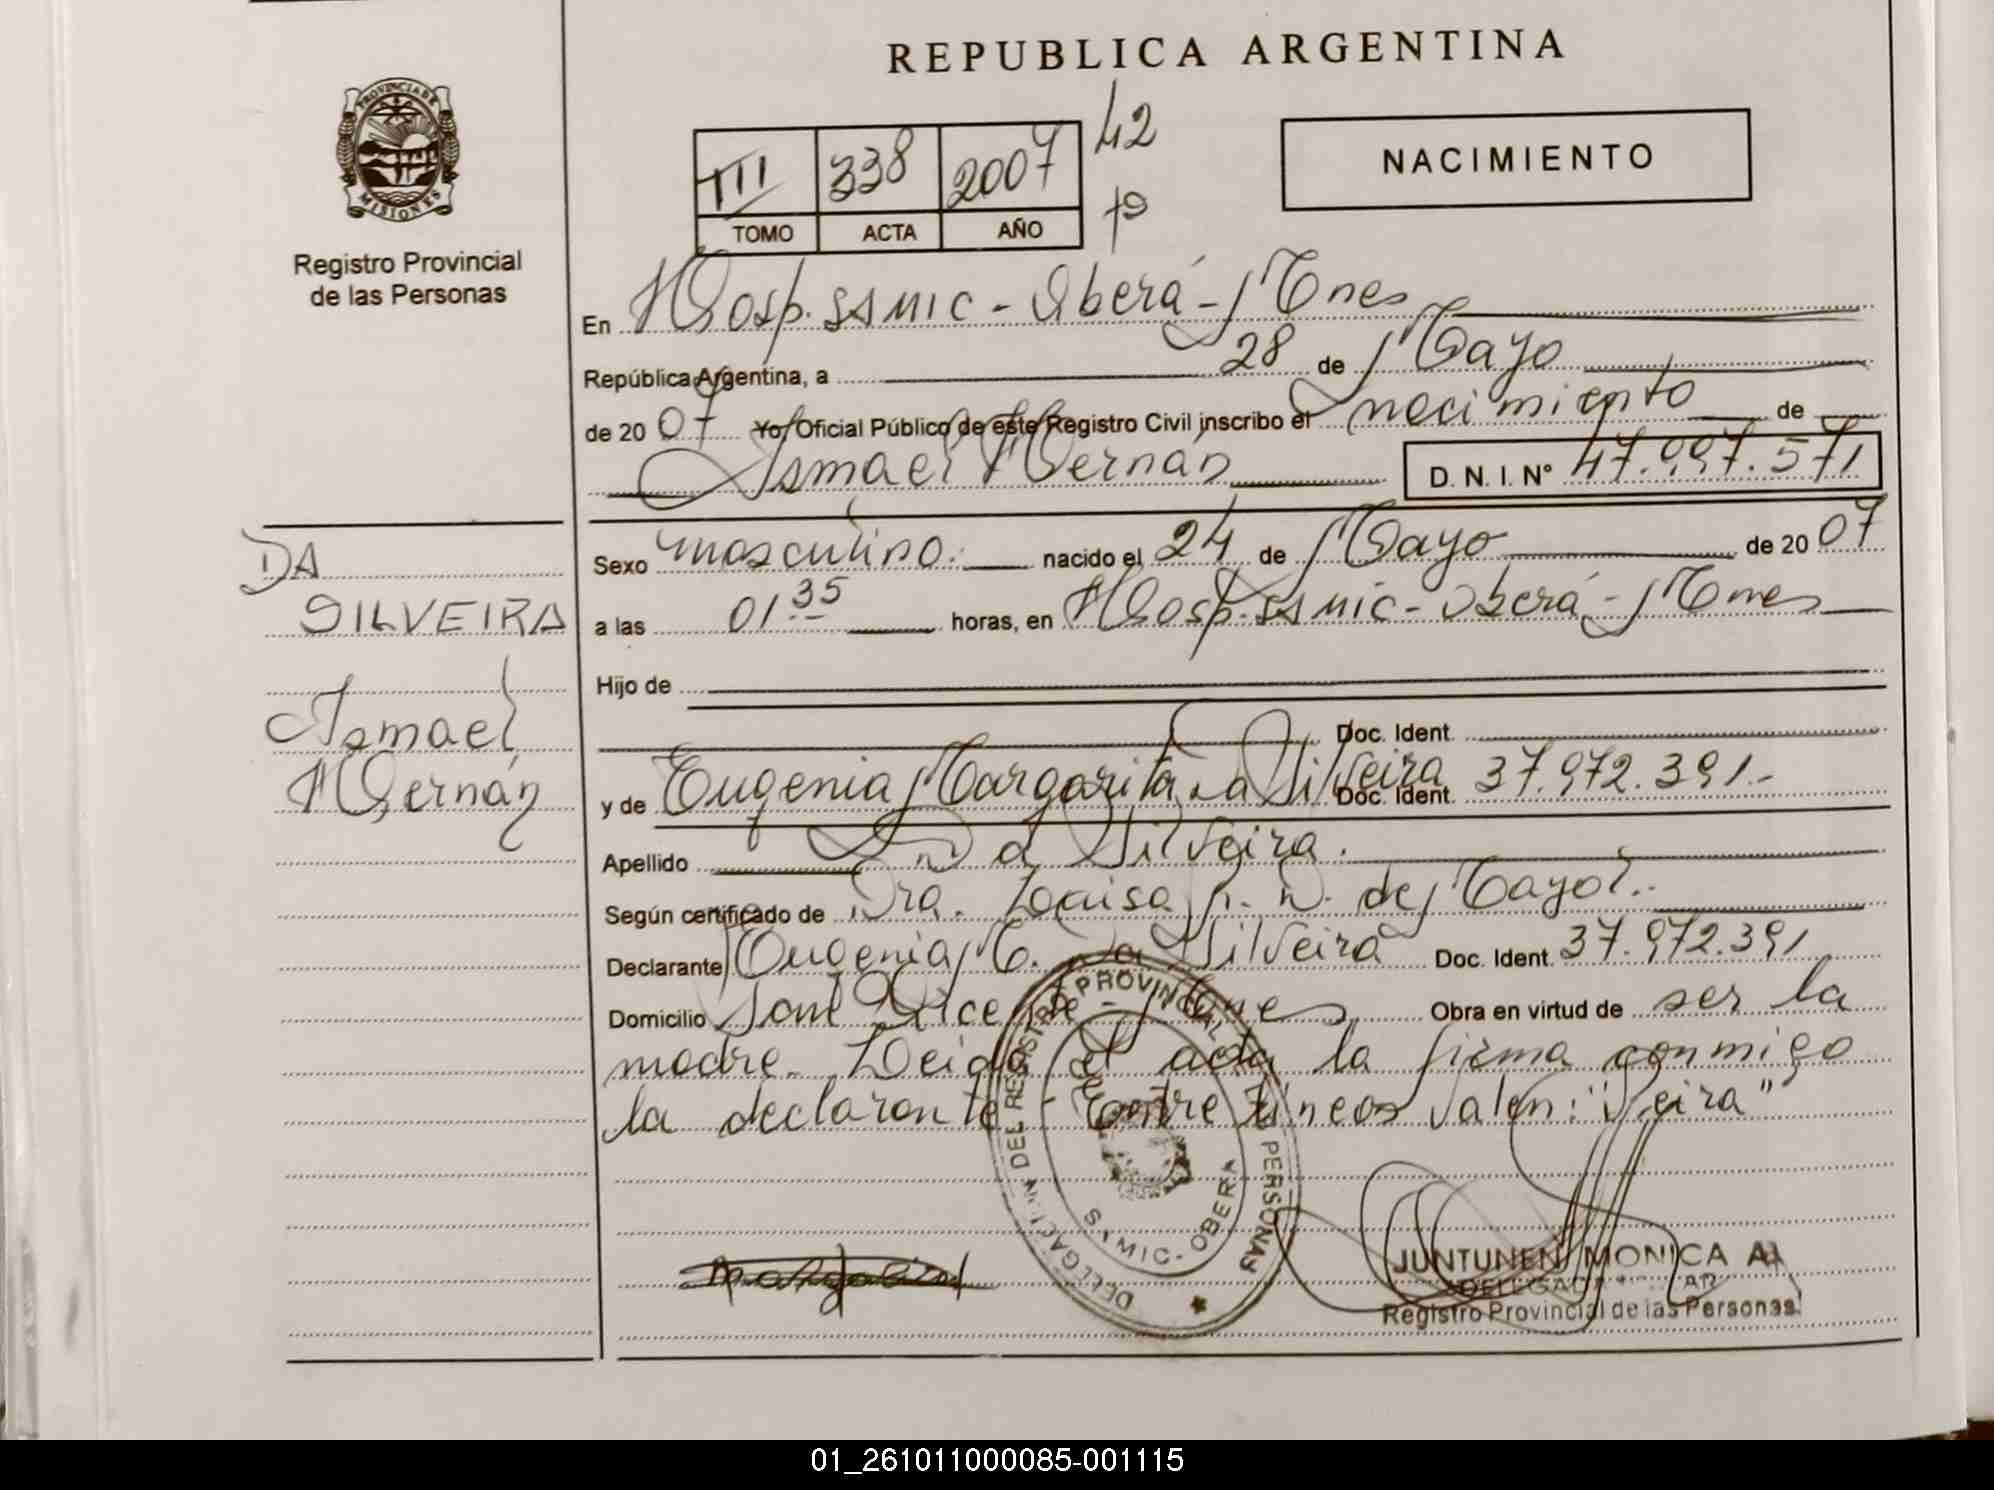 REPUBLICA ARGENTINA
PROVINCIA DE
MISIONES
Registro Provincial
de las Personas
III 338 2007 42
TOMO ACTA AÑO
NACIMIENTO
En Hosp. SAMIC - Oberá - Mnes
República Argentina, a 28 de Mayo
de 2007 Yo, Oficial Público de este Registro Civil inscribo el nacimiento de
Ismael Hernán D. N. I. Nº 47.997.571
DA
SILVEIRA
Ismael
Hernán
Sexo masculino. nacido el 24 de Mayo de 2007
a las 01.35 horas, en Hosp. SAMIC - Oberá - Mnes
Hijo de
Doc. Ident.
y de Eugenia Margarita Da Silveira Doc. Ident. 37.972.391.-
Apellido Da Silveira.
Según certificado de Dra. Louisa de Mayol.
Declarante Eugenia M. Da Silveira Doc. Ident. 37.972.391
Domicilio Sant Vicente - Mnes Obra en virtud de ser la
madre. Leida el acta la firma conmigo
la declarante - Entre líneas valen: "Veira"
DELEGACION DEL REGISTRO PROVINCIAL DE LAS PERSONAS
SAMIC - OBERA
JUNTUNEN MONICA A
Registro Provincial de las Personas
01_261011000085-001115